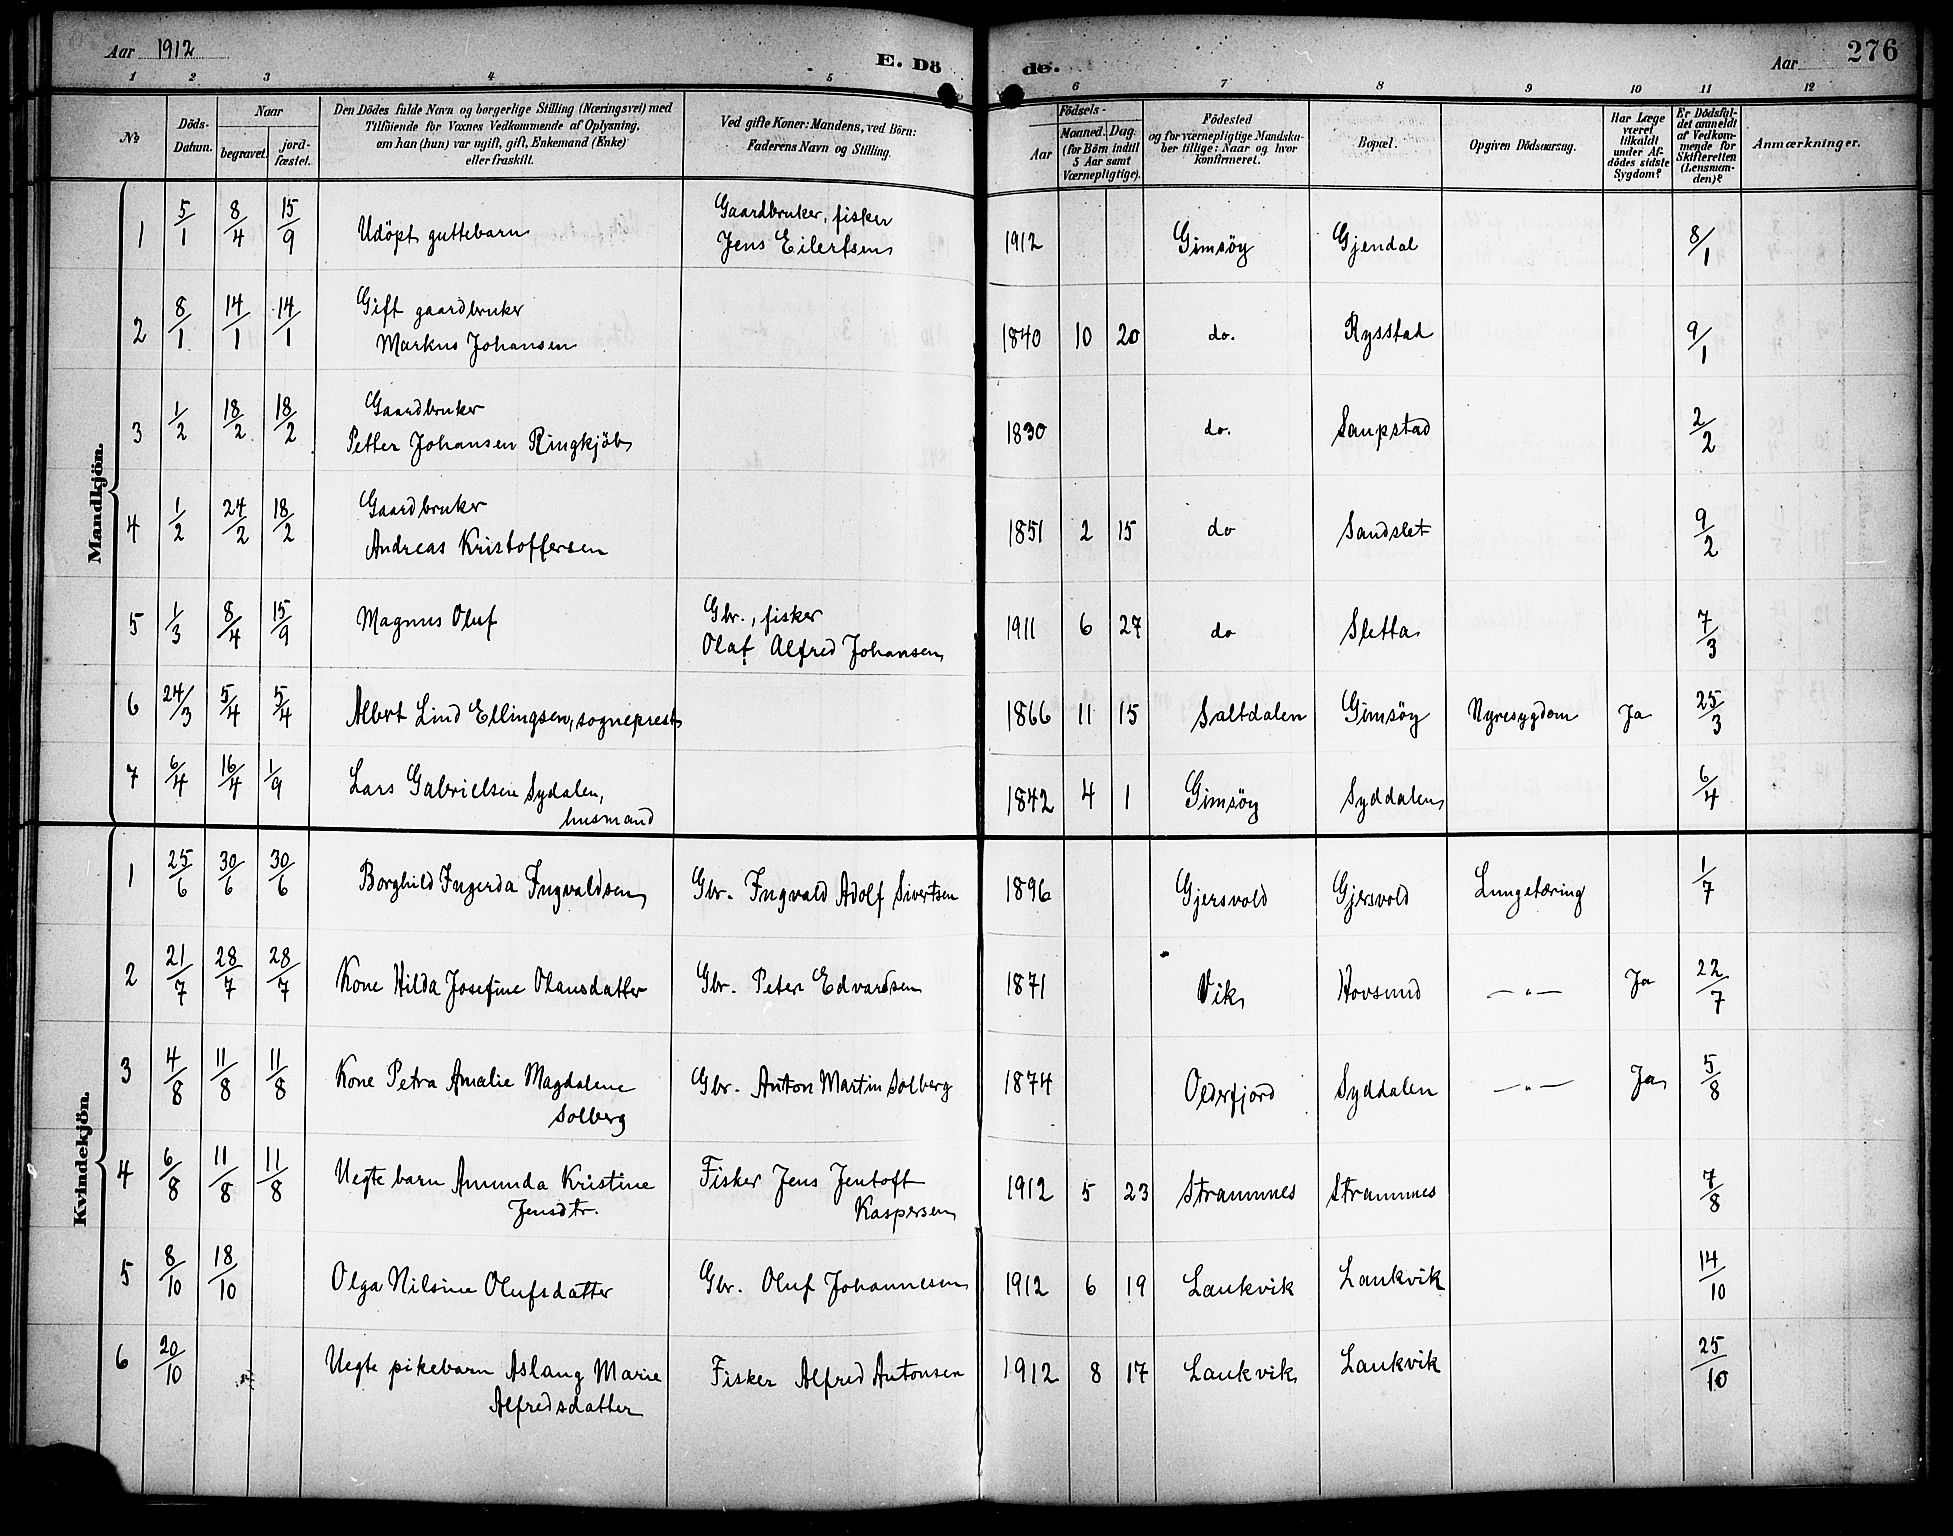 Aar 1912
E. Dö
de.
Aar
276
1 2 3 4 5 6 7 8 9 10 11 12
No
Döds-
Datum.
Naar
begravet.
jord-
fæstet.
Den Dödes fulde Navn og borgerlige Stilling (Næringsvei) med
Tilföiende for Voxnes Vedkommende af Oplysning,
om han (hun) var ugift, gift, Enkemand (Enke)
eller fraskilt.
Ved gifte Koner: Mandens, ved Börn:
Faderens Navn og Stilling.
Födsels-
Aar
Maaned. Dag.
(for Börn indtil
5 Aar samt
Værnepligtige).
Födested
og for værnepligtige Mandska-
ber tillige: Naar og hvor
konfirmeret.
Bopæl.
Opgiven Dödsaarsag.
Har Læge
været
tilkaldt
under Af-
dödes sidste
Sygdom?
Er Dödsfal-
det anmeldt
af Vedkom-
mende for
Skifteretten
(Lensman-
den)?
Anmærkninger.
Mandkjön.
1 5/1 8/4 15/9 Udöpt guttebarn Gaardbruker, fisker
Jens Eilertsen 1912 Gimsöy Gjendal 8/1
2 8/1 14/1 14/1 Gift gaardbruker
Markus Johansen 1840 10 20 do. Rysstad 9/1
3 1/2 18/2 18/2 Gaardbruker
Petter Johansen Ringkjöb 1830 do. Saupstad 2/2
4 1/2 24/2 18/2 Gaardbruker
Andreas Kristoffersen 1851 2 15 do Sandslet 9/2
5 1/3 8/4 15/9 Magnus Oluf Gbr., fisker
Olaf Alfred Johansen 1911 6 27 do Sletta 7/3
6 24/3 5/4 5/4 Albert Lind Ellingsen, sogneprest 1866 11 15 Saltdalen Gimsöy Nyresygdom Ja 25/3
7 6/4 16/4 1/9 Lars Gabrielsen Sydalen,
husmand 1842 4 1 Gimsöy Syddalen 6/4
Kvindekjön.
1 25/6 30/6 30/6 Borghild Ingerda Ingvaldsen Gbr. Ingvald Adolf Sivertsen 1896 Gjersvold Gjersvold Lungetæring 1/7
2 21/7 28/7 28/7 Kone Hilda Josefine Olausdatter Gbr. Peter Edvardsen 1871 Vik Hovsund —"— Ja 22/7
3 4/8 11/8 11/8 Kone Petra Amalie Magdalene
Solberg Gbr. Anton Martin Solberg 1874 Olderfjord Syddalen —"— Ja 5/8
4 6/8 11/8 11/8 Uegte barn Amunda Kristine
Jensdtr. Fisker Jens Jentoft
Kaspersen 1912 5 23 Stramnes Stramnes 7/8
5 8/10 18/10 Olga Nilsine Olufsdatter Gbr. Oluf Johannesen 1912 6 19 Laukvik Laukvik 14/10
6 20/10 Uegte pikebarn Aslaug Marie
Alfredsdatter Fisker Alfred Antonsen 1912 8 17 Laukvik Laukvik 25/10